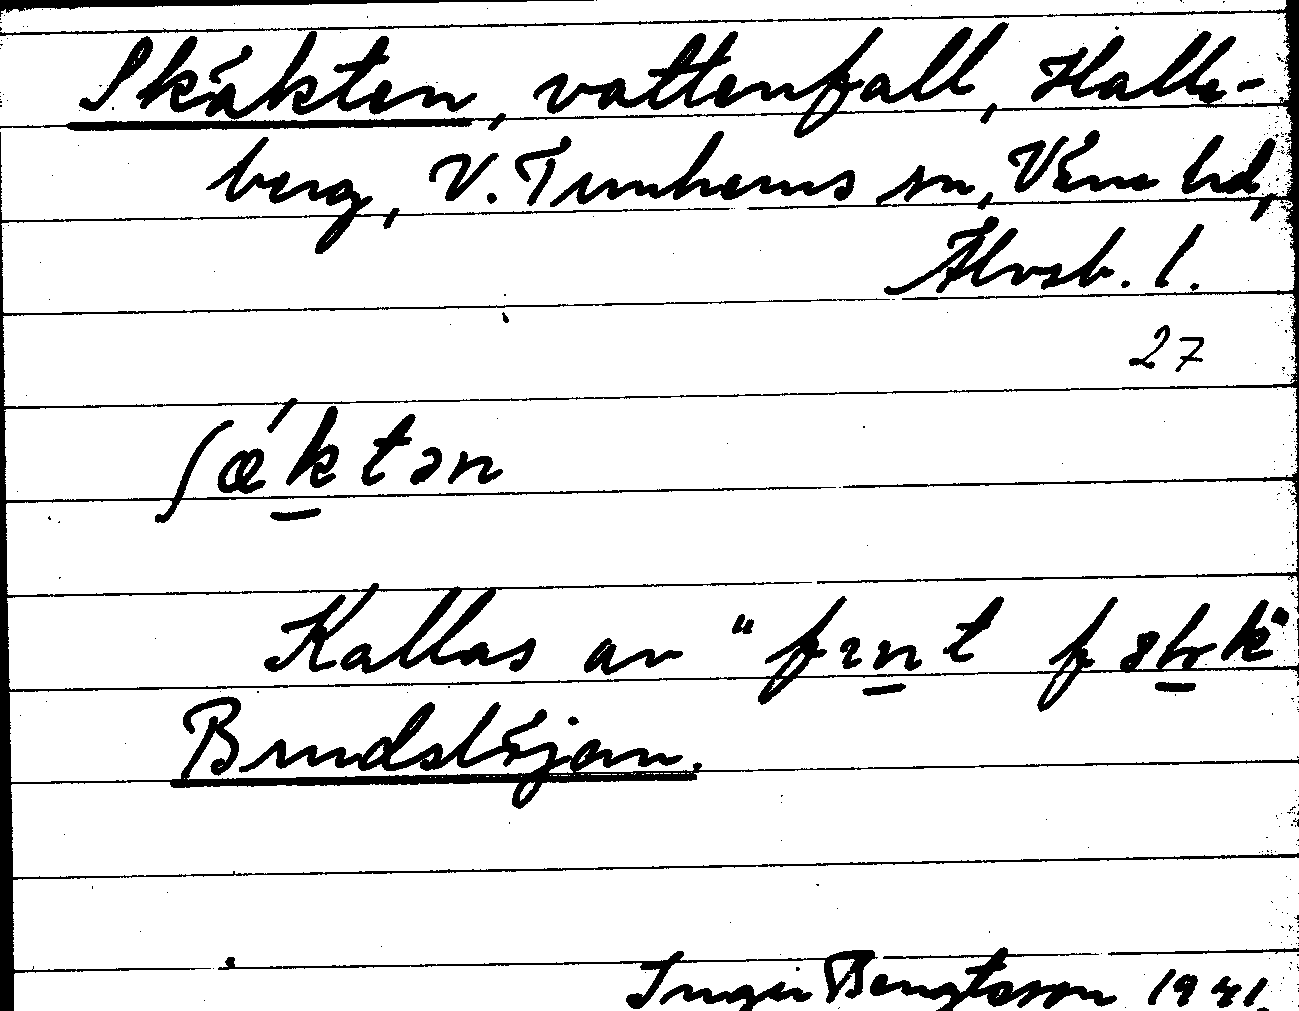 Skäkten, vattenfall, Halle-
berg, V. Tunhems sn, Väne hd,
Älvsb. l.
27
ʃǽktən
Kallas av "fint folk"
Brudslöjan.
Inger Bengtsson 1941.